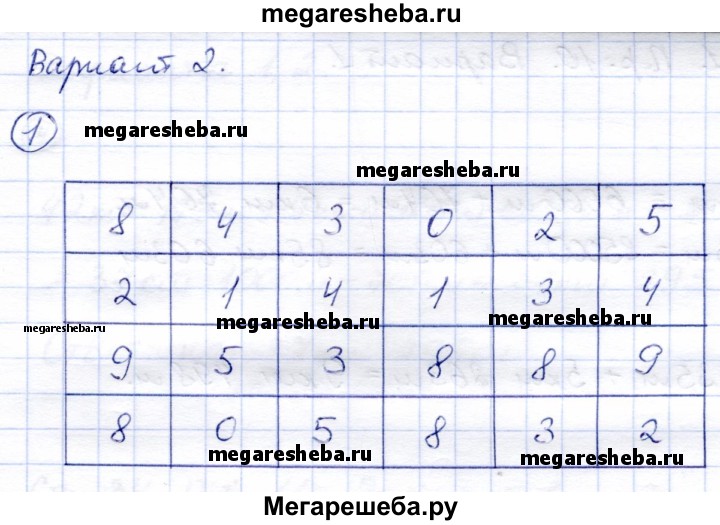 megaresheba.ru
Вариант 2.
1 megaresheba.ru
megaresheba.ru
8 4 3 0 2 5
2 1 4 1 3 4
megaresheba.ru megaresheba.ru megaresheba.ru
9 5 3 8 8 9
8 0 5 8 3 2
megaresheba.ru megaresheba.ru
Мегарешеба.ру